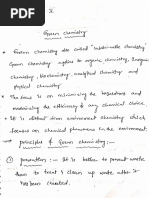 I
Green chemistry
• Green chemistry also called "sustainable chemistry"
Green chemistry applies to organic chemistry, Inorganic
chemistry, Biochemistry, analytical chemistry and
physical chemistry.
• The focus is on minimizing the hazardous and
maximizing the efficiency of any chemical choice.
• It is distinct from environment chemistry which
focuses on chemical phenomena in the environment.
principles of Green chemistry :-
1) prevention :- It is better to prevent waste
than to treat & clean up waste after it
has been created.